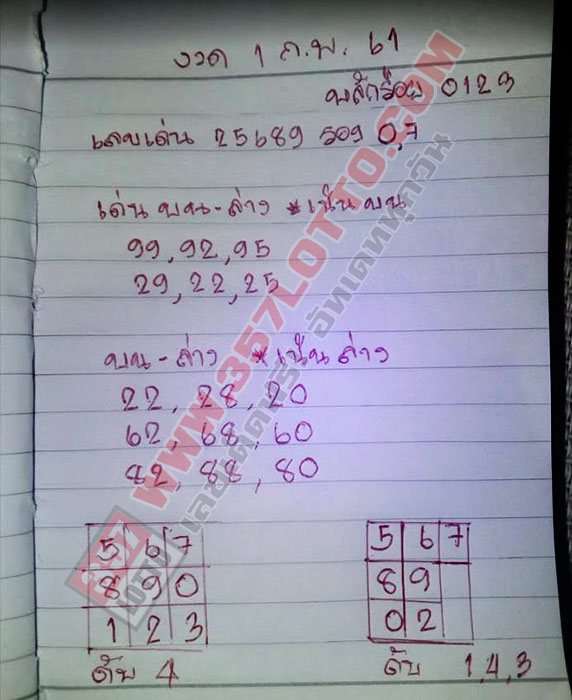 งวด 1 ก.พ. 61
หลักร้อย 0123
เลขเด่น 25689 รอง 0,7
เด่น บน-ล่าง * เน้น บน
99, 92, 95
29, 22, 25
บน - ล่าง * เน้น ล่าง
22, 28, 20
62, 68, 60
82, 88, 80
5 6 7
8 9 0
1 2 3
ดับ 4
5 6 7
8 9
0 2
ดับ 1,4,3
WWW.357LOTTO.COM
เลขเด็ดฟรี อัพเดททุกวัน
357
LOTTO